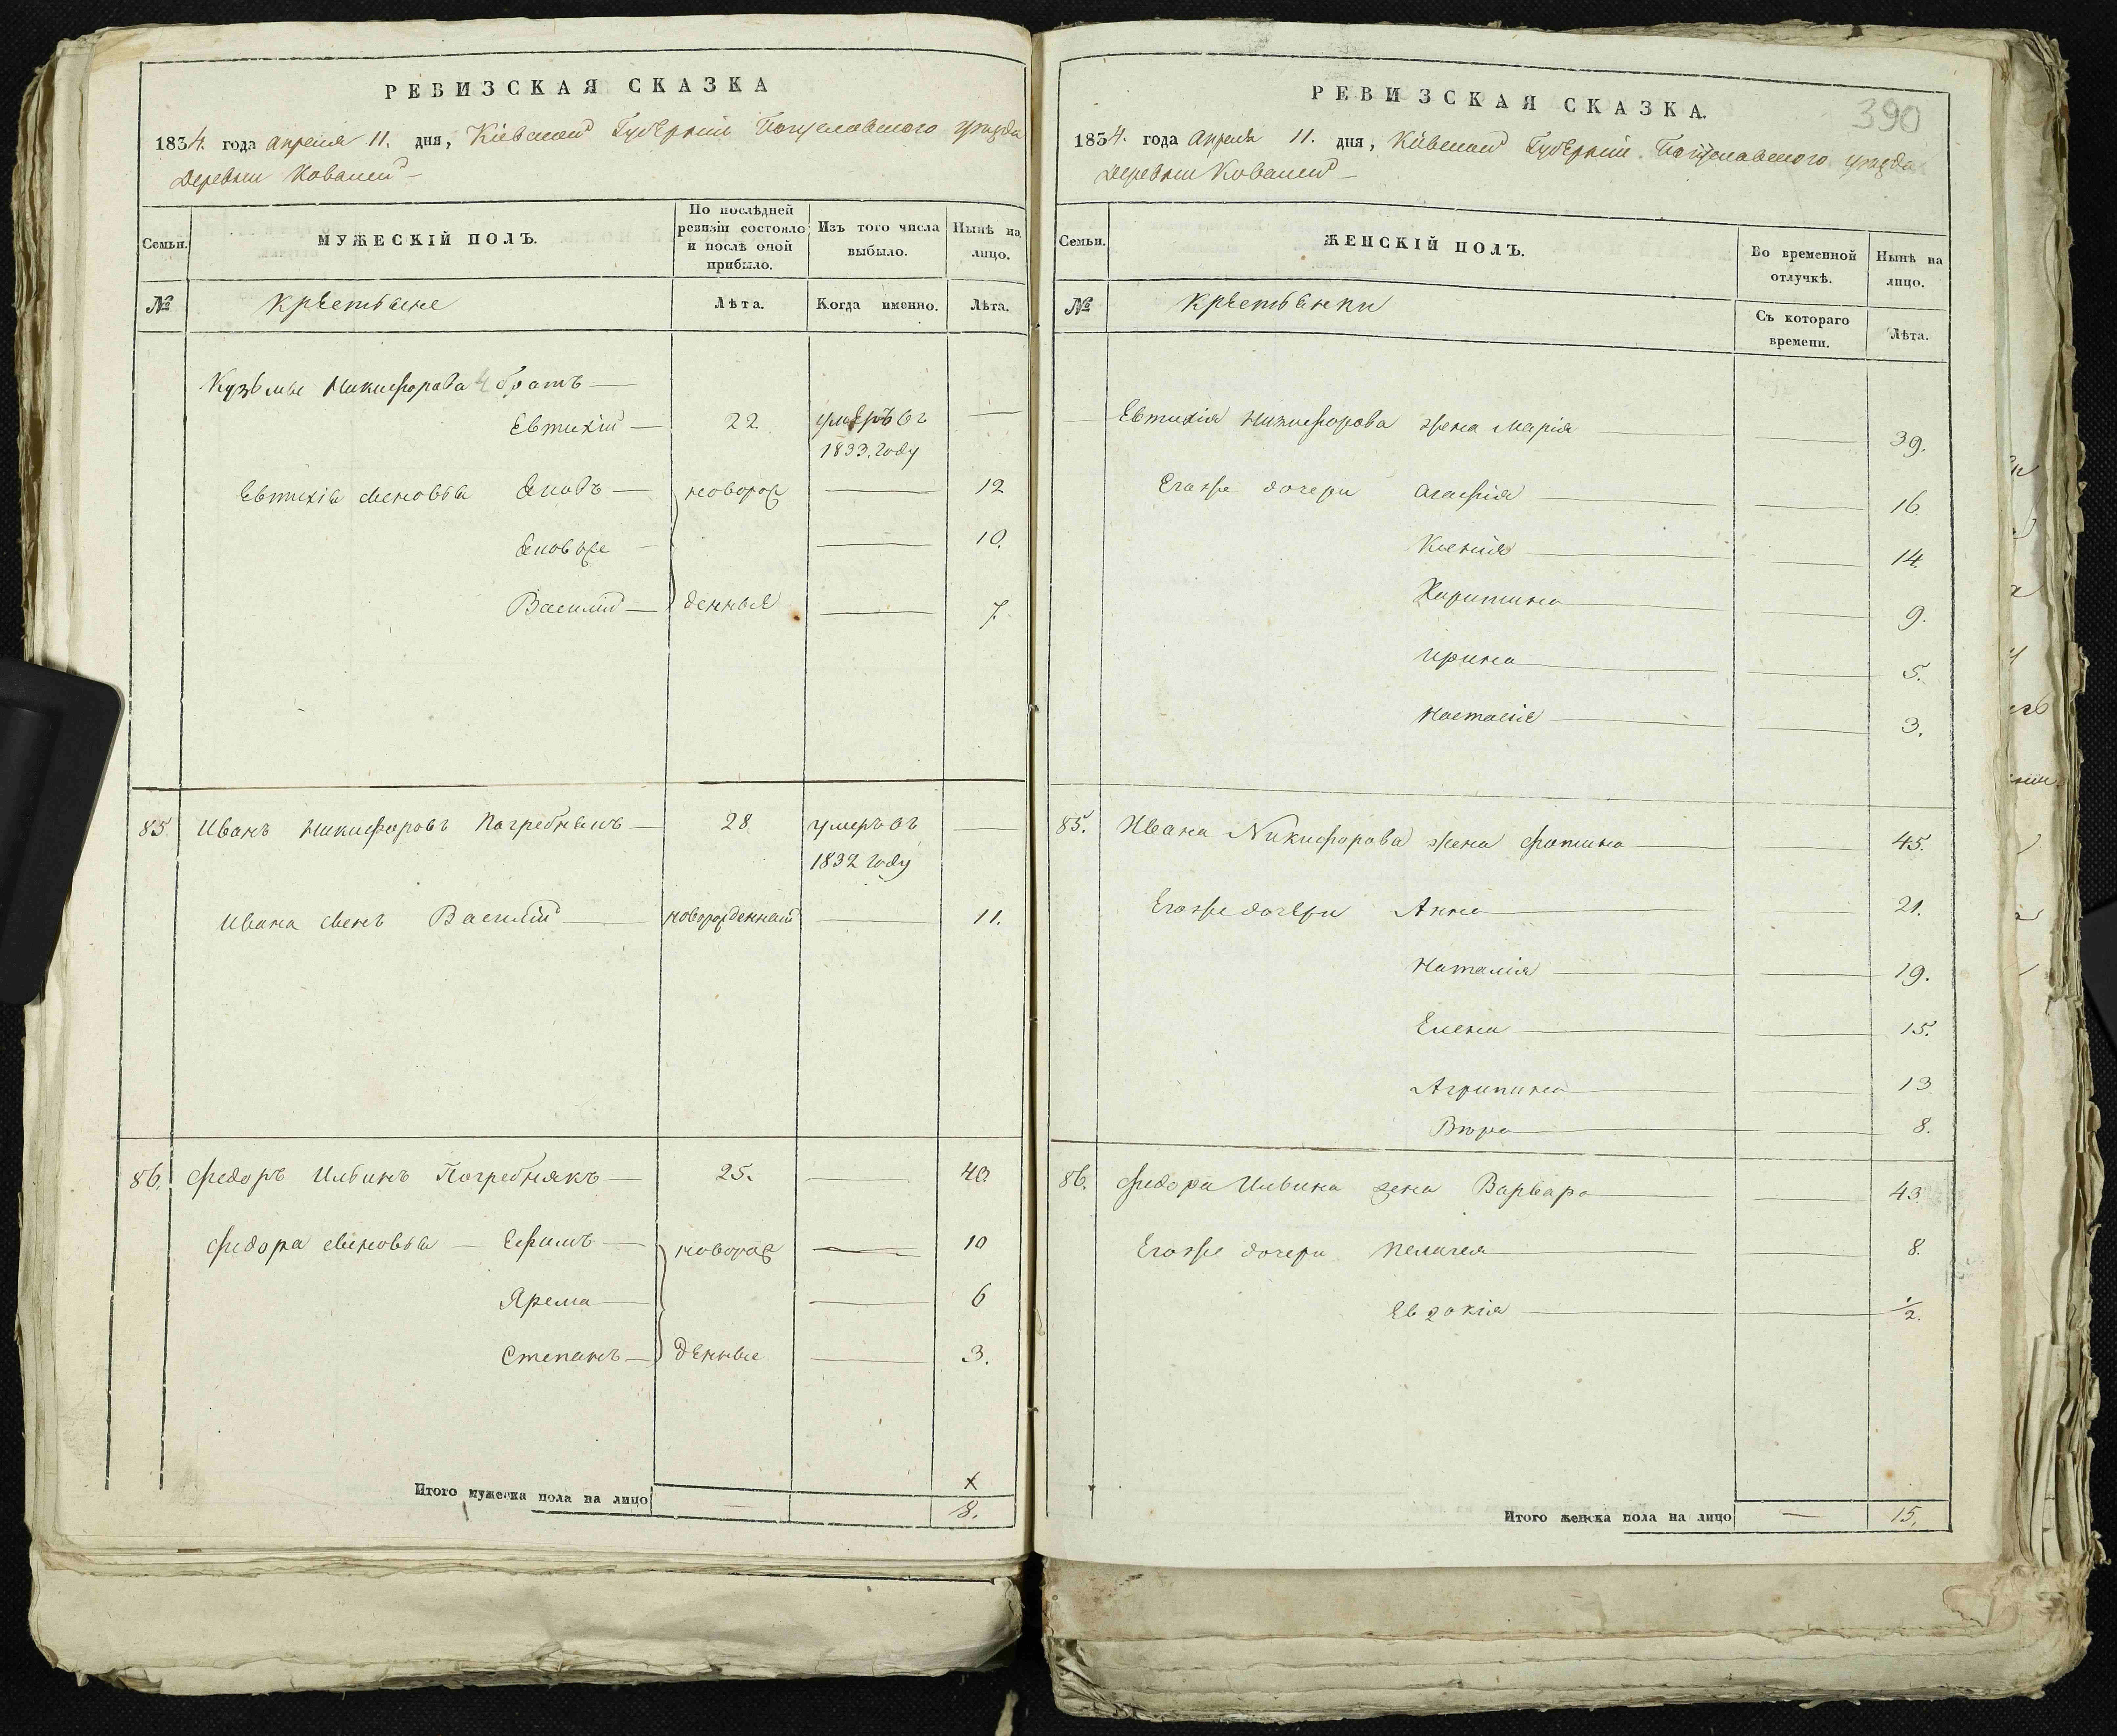 РЕВИЗСКАЯ СКАЗКА
1834. года Апреля 11. дня, Кіевской Губерніи Богуславского уезда
Деревни Ковалей
Семьи.
МУЖЕСКІЙ ПОЛЪ.
По послѣдней ревизіи состояло и послѣ оной прибыло.
Изъ того числа выбыло.
Нынѣ на лицо.
№
Крестьяне
Лѣта.
Когда именно.
Лѣта.
Кузьмы Никифорова 4 братъ
Евтихій 22 умеръ въ
1833. году
Евтихія сыновья новорож 12
10.
Василій денные 7
85 Иванъ Никифоровъ Погребнякъ 28 умеръ въ
1832 году
Ивана сынъ Василій новорожденный 11.
86. Федоръ Ильинъ Погребнякъ 25. 40
Федора сыновья Ефимъ новорож 10
Ярема 6
Степанъ денные 3.
Итого мужеска пола на лицо 8.
390
РЕВИЗСКАЯ СКАЗКА.
1834. года Апреля 11. дня, Кіевской Губерніи Богуславского уезда
Деревни Ковалей
Семьи.
ЖЕНСКІЙ ПОЛЪ.
Во временной отлучкѣ.
Нынѣ на лицо.
№
Крестьянки
Съ котораго времени.
Лѣта.
Евтихія Никифорова жена Марія 39.
Егоже дочери Агафія 16
Ксенія 14.
Харитина 9.
Ирина 5.
Настасія 3.
85. Ивана Никифорова жена Фотина 45.
Егоже дочери Анна 21.
Наталія 19.
Елена 15.
Агрипина 13
Вѣра 8.
86. Федора Ильина жена Варвара 43
Егоже дочери Пелагея 8.
Евдокія 1/2.
Итого женска пола на лицо 15.